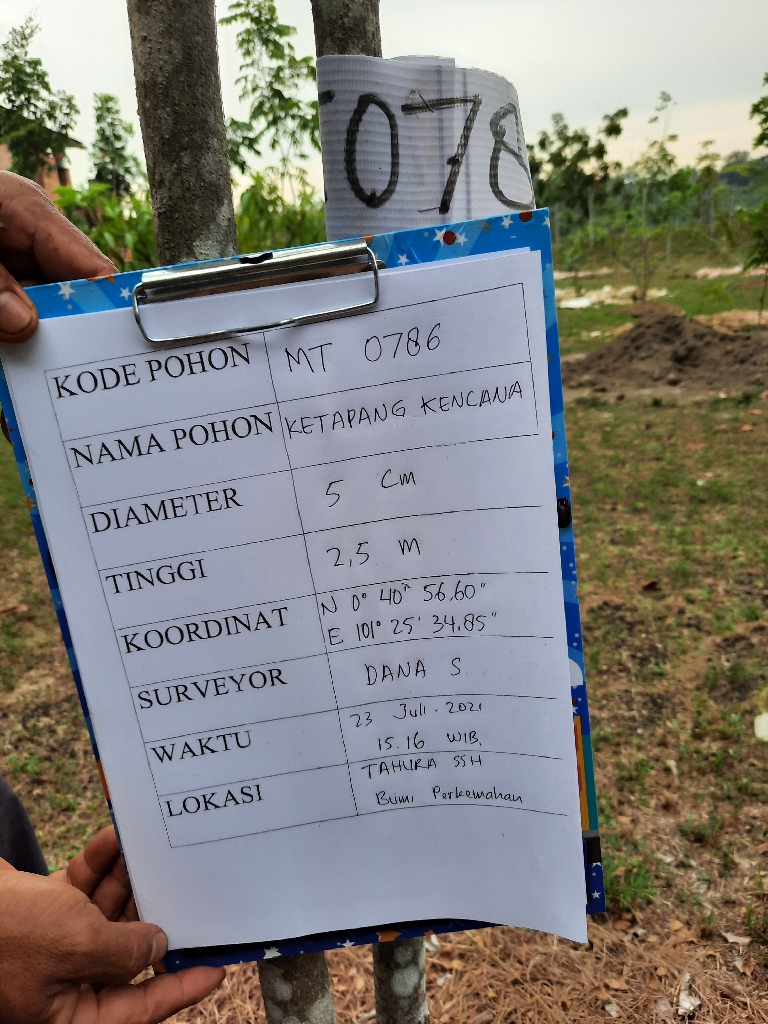 078
KODE POHON MT 0786
NAMA POHON KETAPANG KENCANA
DIAMETER 5 Cm
TINGGI 2,5 m
KOORDINAT N 0° 40" 56,60"
E 101° 25' 34.85"
SURVEYOR DANA S
WAKTU 23 Juli. 2021
15.16 WIB.
LOKASI TAHURA SSH
Bumi Perkemahan